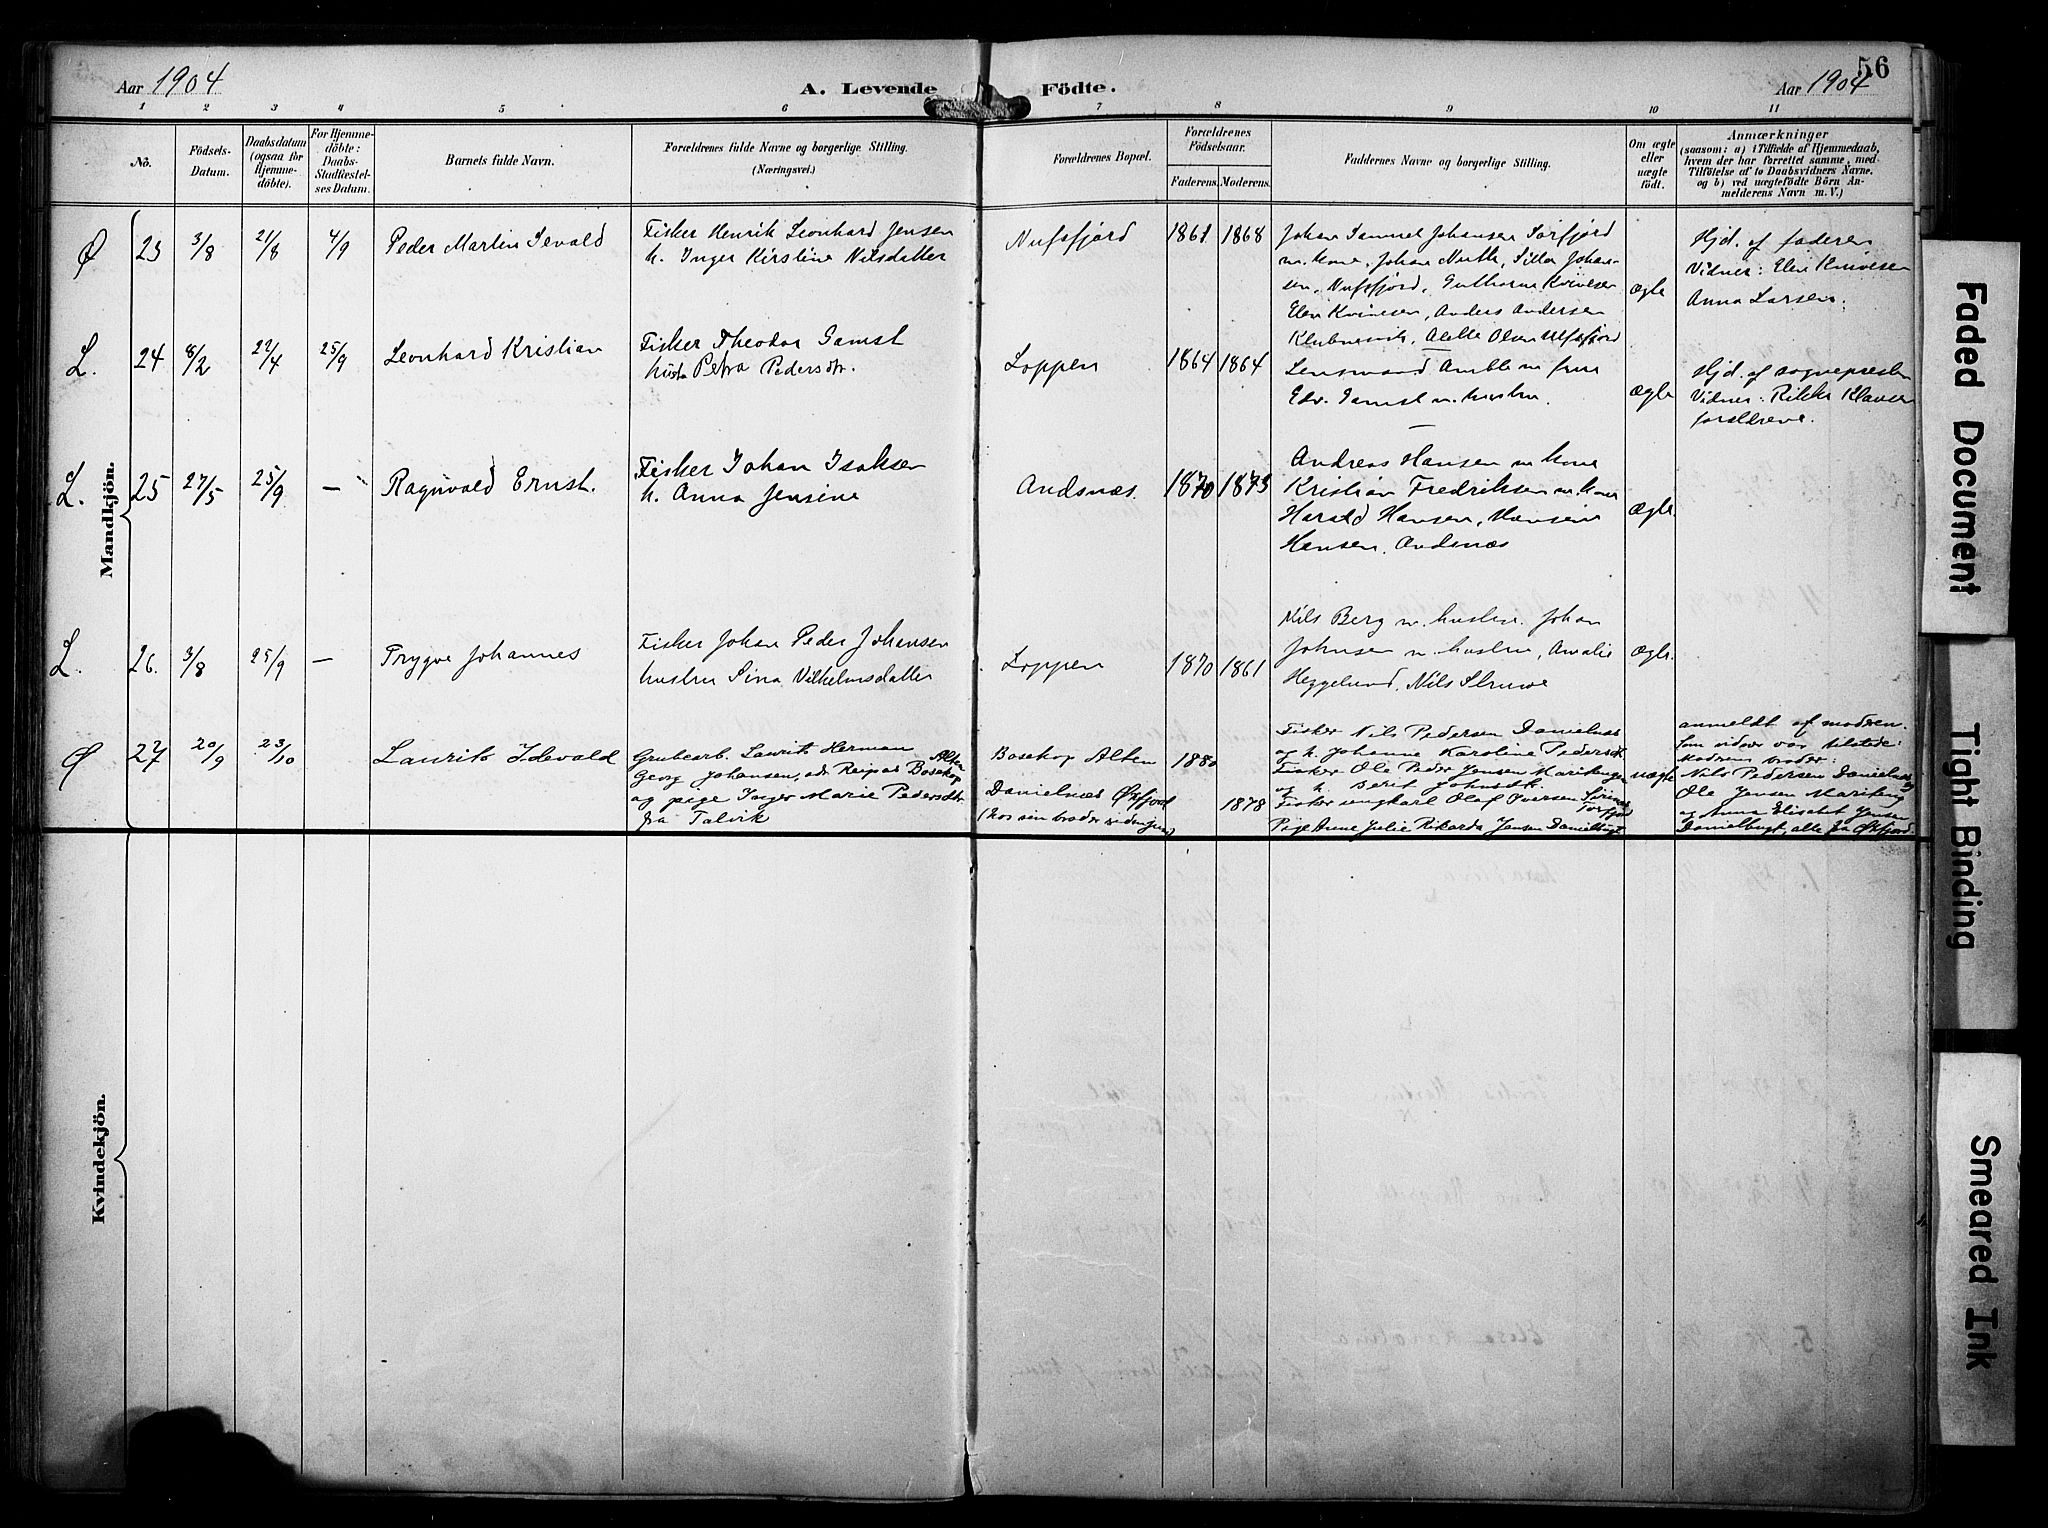 56
Aar 1904
A. Levende Födte.
Aar 1904
1 2 3 4 5 6 7 8 9 10 11
No.
Födsels-
Datum.
Daabsdatum
(ogsaa for
Hjemme-
döbte).
For Hjemme-
döbte:
Daabs-
Stadfæstel-
ses Datum.
Barnets fulde Navn.
Forældrenes fulde Navne og borgerlige Stilling.
(Næringsvei.)
Forældrenes Bopæl.
Forældrenes
Födselsaar.
Faderens. Moderens.
Faddernes Navne og borgerlige Stilling.
Om ægte
eller
uægte
födt.
Anmærkninger
(saasom: a) i Tilfælde af Hjemmedaab,
hvem der har forrettet samme, med
Tilföielse af to Daabsvidners Navne,
og b) ved uægtefödte Börn An-
melderens Navn m. V.)
Mandkjön.
Ø 23 3/8 21/8 4/9 Peder Martin Sevald
Fisker Henrik Leonhard Jensen
h. Inger Kirstine Nilsdatter
Nufsfjord 1861 1868
Johan Samuel Johansen Sörfjord
m. kone, Johan Nutti, Silla Johan-
sen, Nufsfjord,
Elen Anders Andersen
Olsen
ægte
Hjd. af faderen
Vidner: Elen
Anna Larsen.
L. 24 8/2 24 25/9 Leonhard Kristian
Fisker Theodor Gamst
hustru Petra Pedersdtr.
Loppen 1864 1864
Lensmand m. frue
Edv. Gamst m. hustru.
ægte
Hjd. af sognepresten
Vidner: Rikke Klausen
forældrene.
L. 25 27/5 25/9 — Ragnvald Ernst.
Fisker Johan Isaksen
h. Anna Jensine
Andsnæs. 1870 1873
Andreas Hansen m. kone
Kristian Fredriksen m. kone
Harald Hansen, Hansine
Hansen, Andsnæs
Ægte.
L. 26. 3/8 25/9 — Trygve Johannes
Fisker Johan Peder Johansen
hustru Sina Vilhelmsdatter
Loppen 1870 1861
Nils Berg m. hustru. Johan
Johnsen m. hustru, Amalie
Heggelund, Nils Struve
Ægte.
Ø 27 20/9 23/10 Laurits Idevald
Grubearb. Laurits Herman
Georg Johansen, adr. Reipas Bosekop Alten
og pige Inger Marie Pedersdtr.
fra Talvik
Bosekop Alten 1880
Danielnæs Øxfjord 1878
(hos sin broder
Fisker Nils Pedersen Danielnæs
og h. Johanne Karoline Pedersdtr
Fisker Ole Peder Jensen
og h. Berit Johnsdtr.
Fisker ungkarl Olaf Iversen
Pige Anne Julie Rikarda Jensen Danielbugt
uægte
anmeldt af modren.
Som vidner var tilstede:
Moderens broder:
Nils Pedersen Danielnæs
Ole Jensen
og Anna Elisabet Jensen
Danielbugt, alle fra Øxfjord.
Kvindekjön.
Faded Document
Tight Binding
Smeared Ink